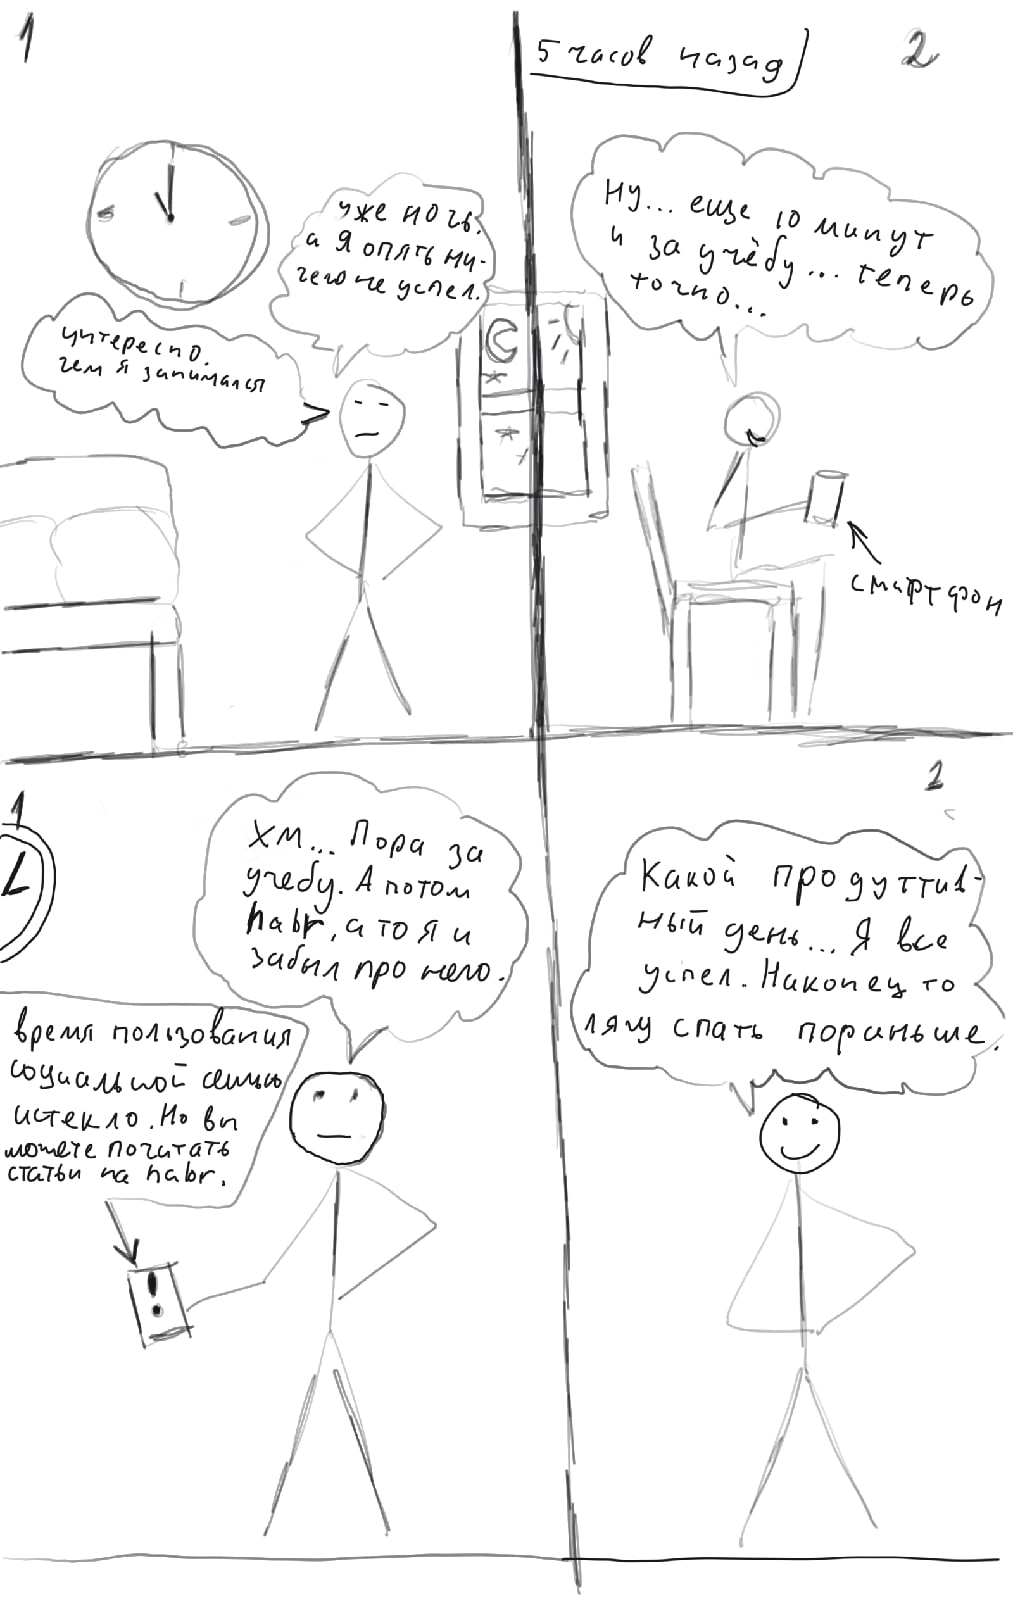 1
уже ночь.
а я опять ни-
чего не успел.
интересно.
чем я занимался
5 часов назад
2
ну... еще 10 минут
и за учёбу... теперь
точно...
смартфон
1
хм... Пора за
учебу. А потом
habr, а то я и
забыл про него.
время пользования
социальной сетью
истекло. Но вы
можете почитать
статьи на habr.
2
Какой продуттив-
ный день... Я все
успел. Наконец то
лягу спать пораньше.